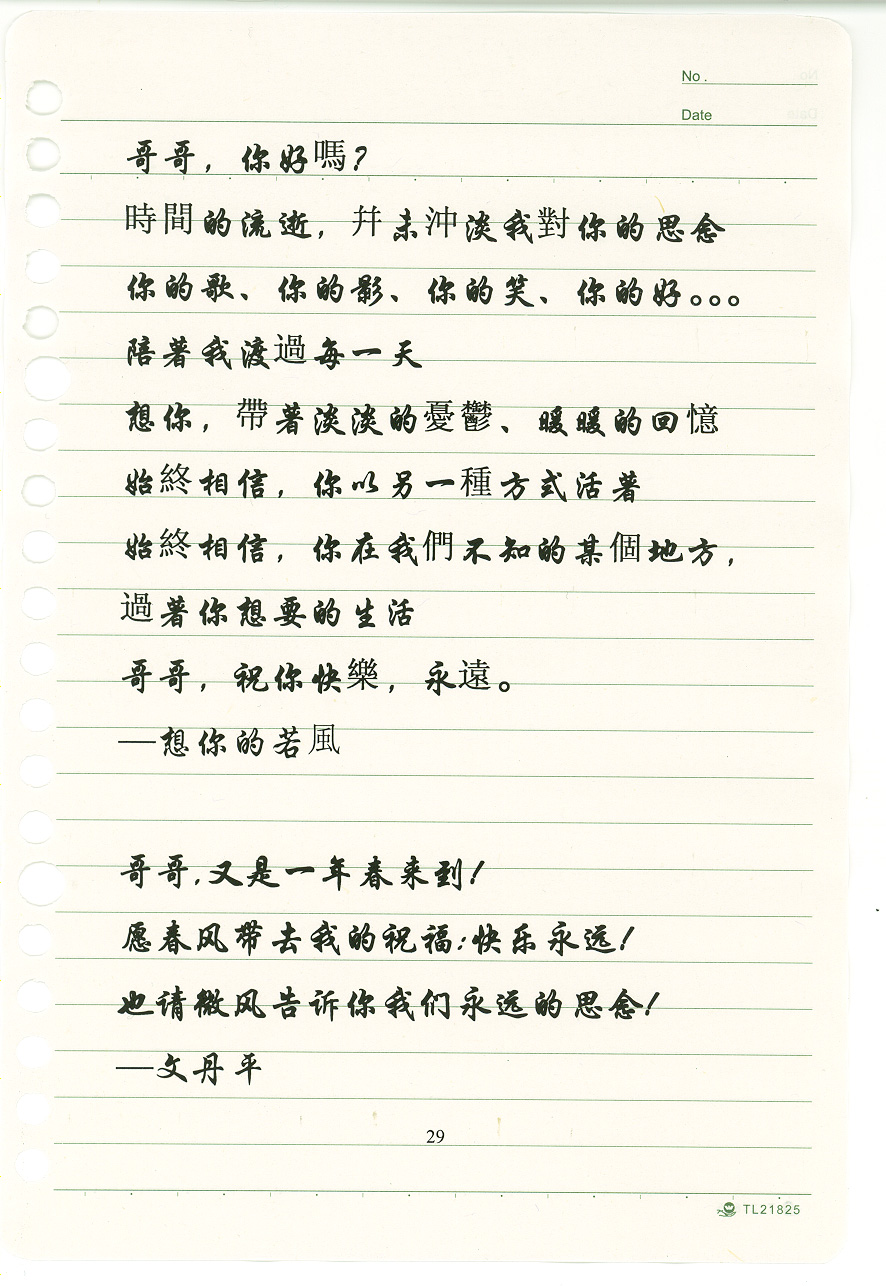 No .
Date
哥哥，你好嗎？
時間的流逝，幷未沖淡我對你的思念
你的歌、你的影、你的笑、你的好。。。
陪著我渡過每一天
想你，帶著淡淡的憂鬱、暖暖的回憶
始終相信，你以另一種方式活著
始終相信，你在我們不知的某個地方，
過著你想要的生活
哥哥，祝你快樂，永遠。
—想你的若風
哥哥,又是一年春来到!
愿春风带去我的祝福:快乐永远!
也请微风告诉你我们永远的思念!
—文丹平
29
TL21825